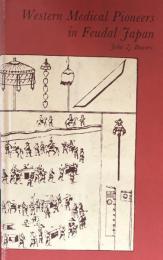 Western Medical Pioneers
in Feudal Japan
John Z. Bowers